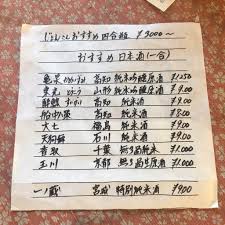 じょんのこおすすめ四合瓶 ¥3000〜
おすすめ日本酒(一合)
亀泉 高知 純米吟醸原酒 ¥1,250
東光 山形 純米吟醸原酒 ¥900
酔鯨 高知 純米酒 ¥900
船中八策 高知 純米酒 ¥900
大七 福島 純米酒 ¥900
天狗舞 石川 純米酒 ¥900
香取 千葉 純米酒 ¥1,000
玉川 京都 純米酒 ¥1,000
一ノ蔵 宮城 特別純米酒 ¥900